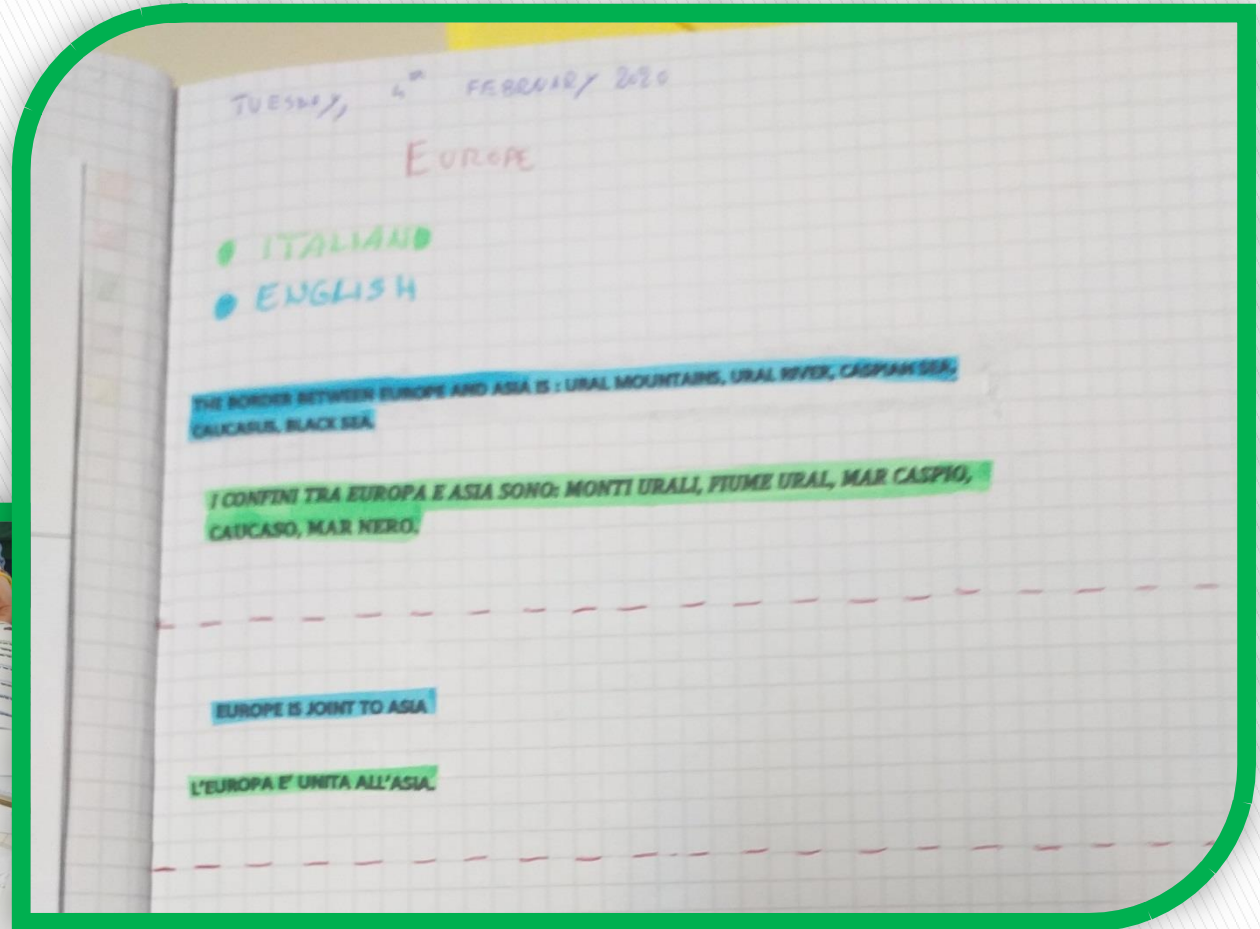 TUESDAY, 4th FEBRUARY 2020
EUROPE
ITALIANO
ENGLISH
THE BORDER BETWEEN EUROPE AND ASIA IS : URAL MOUNTAINS, URAL RIVER, CASPIAN SEA,
CAUCASUS, BLACK SEA.
I CONFINI TRA EUROPA E ASIA SONO: MONTI URALI, FIUME URAL, MAR CASPIO,
CAUCASO, MAR NERO.
EUROPE IS JOINT TO ASIA
L'EUROPA E' UNITA ALL'ASIA.